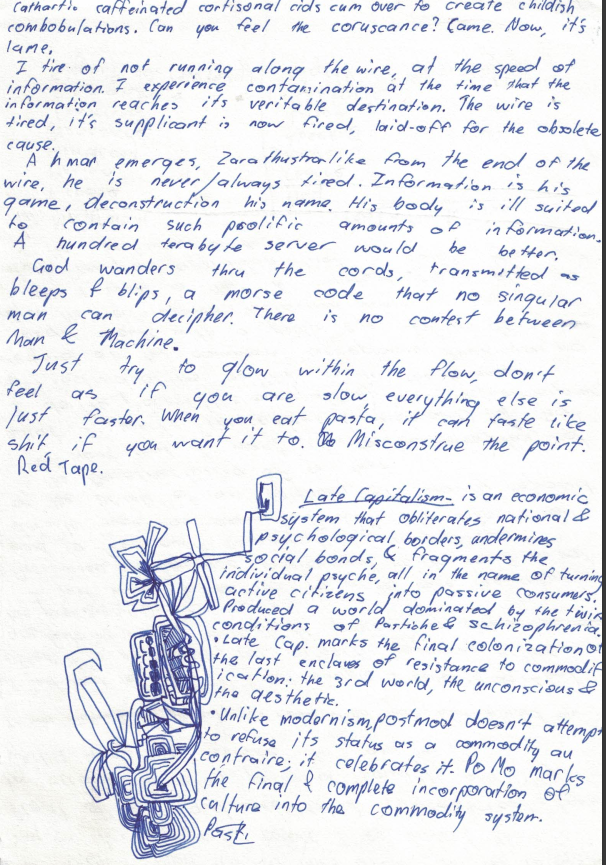 cathartic caffeinated cortisonal cids cum over to create childish
combobulations. Can you feel the coruscance? Came. Now, it's
lame.
I tire of not running along the wire, at the speed of
information. I experience contamination at the time that the
information reaches its veritable destination. The wire is
tired, it's supplicant is now fired, laid-off for the obsolete
cause.
A hman emerges, Zarathustralike from the end of the
wire, he is never/always tired. Information is his
game, deconstruction his name. His body is ill suited
to contain such prolific amounts of information.
A hundred terabyte server would be better.
God wanders thru the cords, transmitted as
bleeps & blips, a morse code that no singular
man can decipher. There is no contest between
Man & Machine.
Just try to glow within the flow, don't
feel as if you are slow, everything else is
just faster. When you eat pasta, it can taste like
shit, if you want it to. Misconstrue the point.
Red Tape.
Late Capitalism- is an economic
system that obliterates national &
psychological borders, undermines
social bonds, & fragments the
individual psyche, all in the name of turning
active citizens into passive consumers.
Produced a world dominated by the twin
conditions of Pastiche & schizophrenia.
• Late Cap. marks the final colonization of
the last enclaves of resistance to commodif
ication: the 3rd world, the unconscious &
the aesthetic.
• Unlike modernism, postmod doesn't attempt
to refuse its status as a commodity au
contraire; it celebrates it. PoMo marks
the final & complete incorporation of
culture into the commodity system.